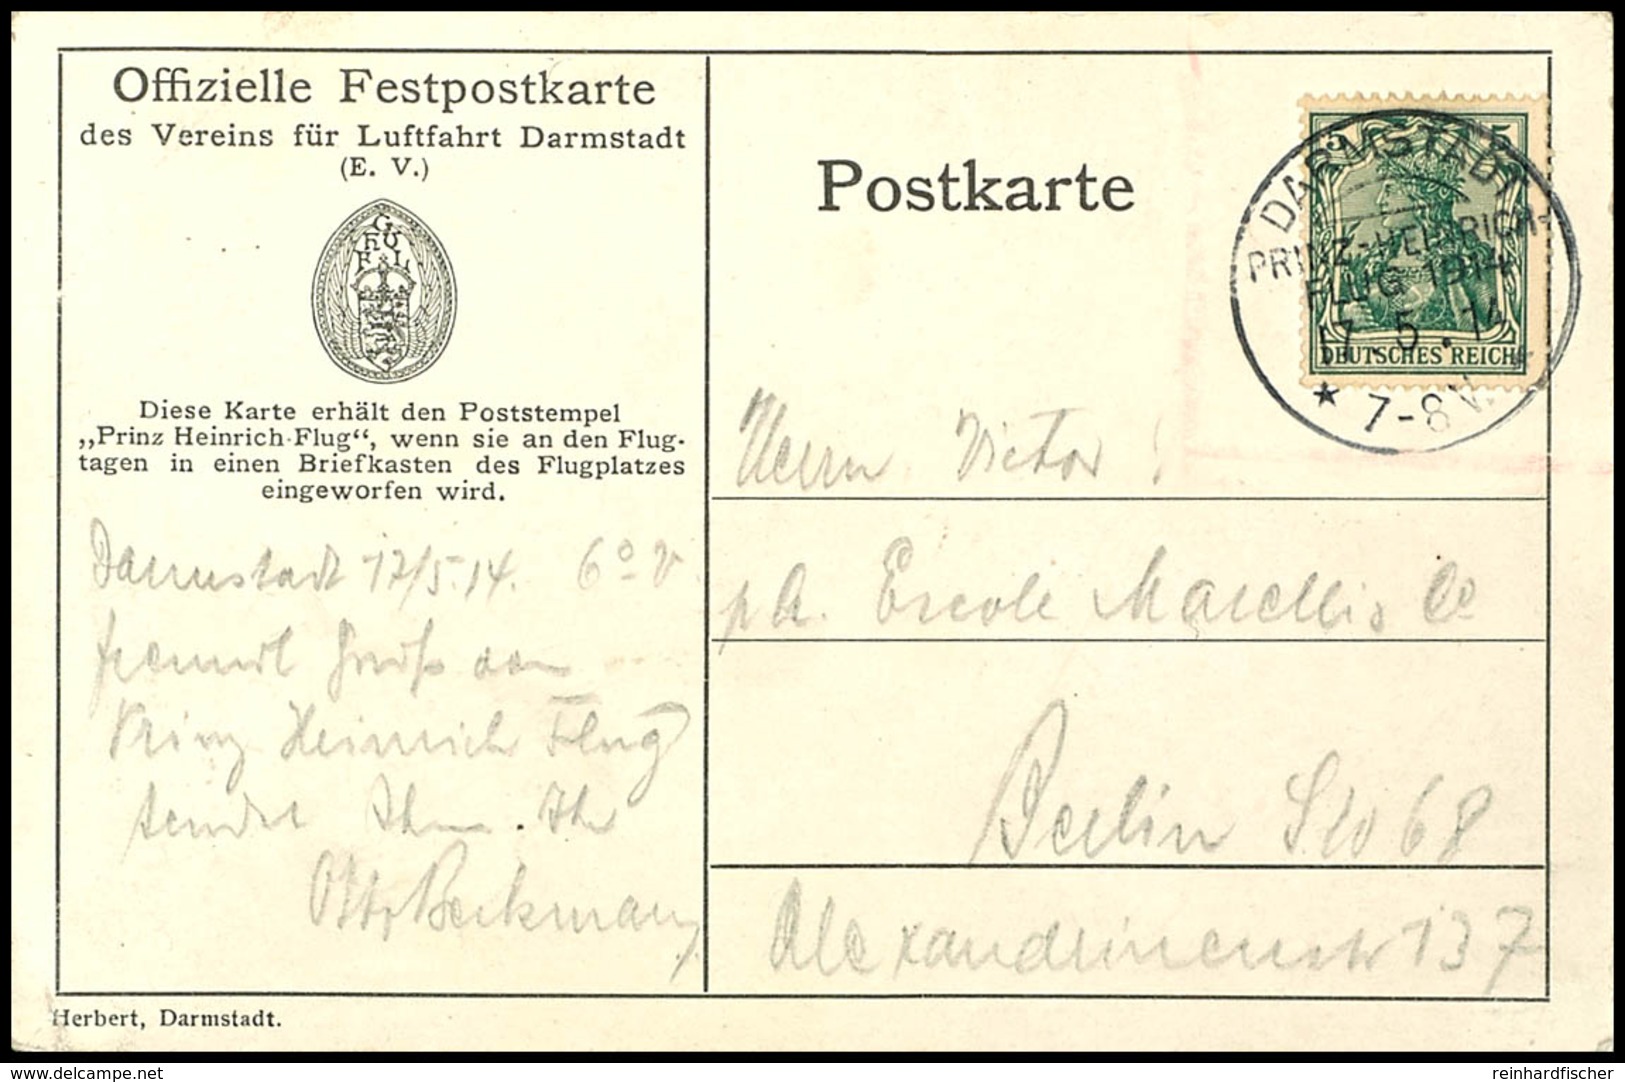 Offizielle Festpostkarte
des Vereins für Luftfahrt Darmstadt
(E. V.)
Diese Karte erhält den Poststempel
„Prinz Heinrich-Flug“, wenn sie an den Flug-
tagen in einen Briefkasten des Flugplatzes
eingeworfen wird.
Darmstadt 17/5.14. 6º V
freundl Gruß vom
Prinz Heinrich Flug
sendet Ihnen Ihr
Otto Beckmann
Herbert, Darmstadt.
Postkarte
5 5
DEUTSCHES REICH
DARMSTADT
PRINZ-HEINRICH-
FLUG 1914
17.5.14
* 7-8 V.
Herrn Victor
pA. Ercole Marellis Co
Berlin SW 68
Alexandrinenstr 137
delcampe.net
reinhardfischer